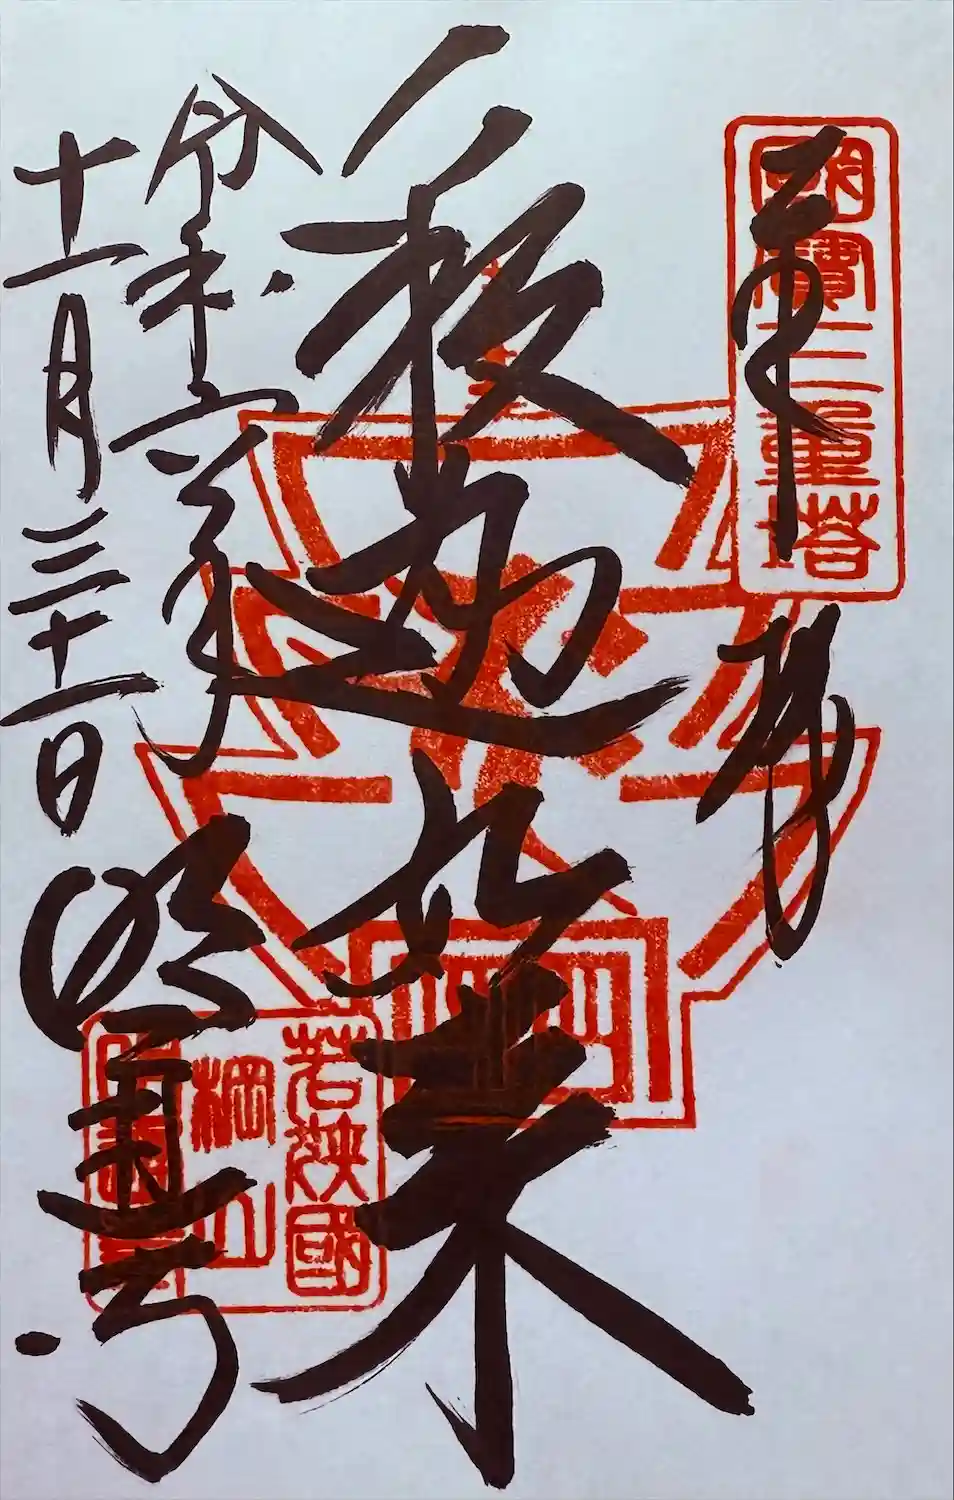 奉拝
國寶三重塔
釈迦如来
令和六年
十一月三十一日
明通寺
若狹國
棡山
明通寺